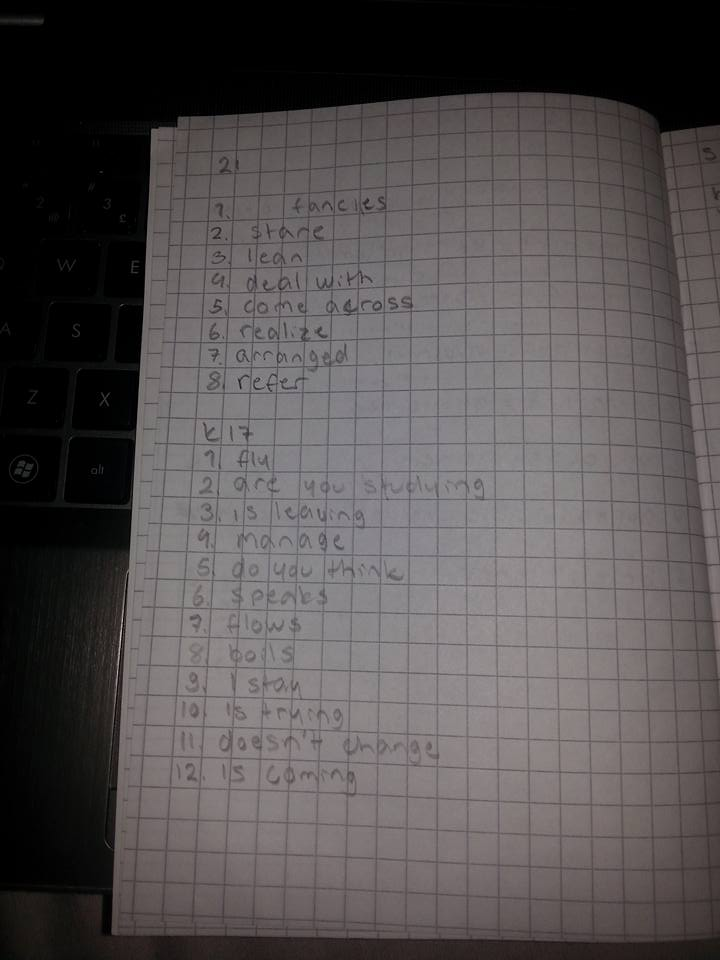 21
1. fancies
2. stare
3. lean
4. deal with
5. come across
6. realize
7. arranged
8. refer
K 17
1 fly
2 are you studying
3. is leaving
4. manage
5 do you think
6. speaks
7. flows
8 boils
9. I stay
10 is trying
11. doesn't change
12. is coming
W
E
A
S
Z
X
alt
2
3
£
#
S